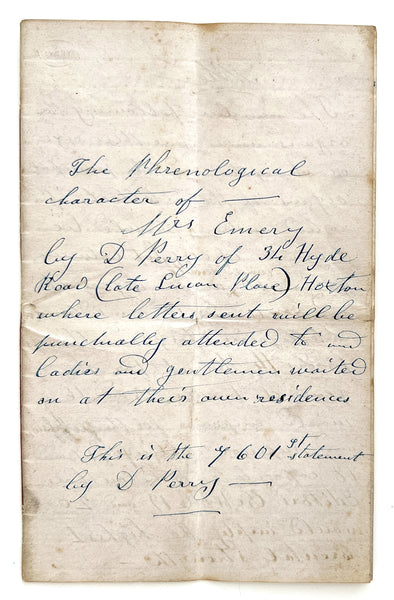 The Phrenological
character of —
Mrs Emery
by D Perry of 34 Hyde
Road (late Lucan Place) Hoxton
where letters sent will be
punctually attended to and
ladies and gentlemen waited
on at their own residences
This is the 7601st statement
by D Perry —